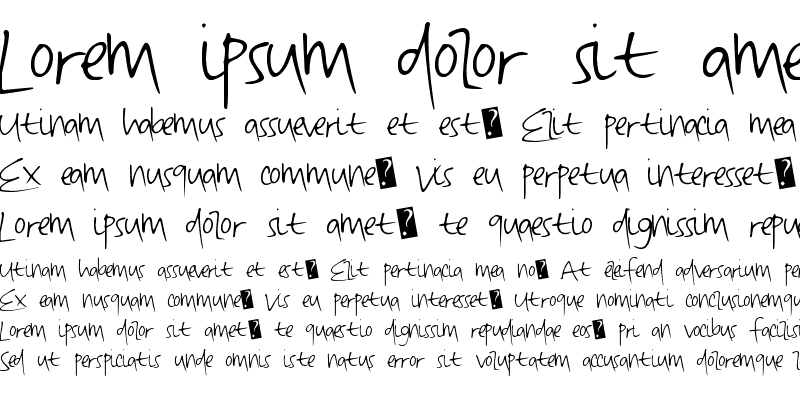 Lorem ipsum dolor sit ame
Utinam habemus assueverit et est� Elit pertinacia mea
Ex eam nusquam commune� Vis eu perpetua interesset�
Lorem ipsum dolor sit amet� te quaestio dignissim repu
Utinam habemus assueverit et est� Elit pertinacia mea no� At eleifend adversarium pe
Ex eam nusquam commune� Vis eu perpetua interesset� Utroque nominati conclusionemqu
Lorem ipsum dolor sit amet� te quaestio dignissim repudiandae eos� pri an vocibus facilisi
Sed ut perspiciatis unde omnis iste natus error sit voluptatem accusantium doloremque l